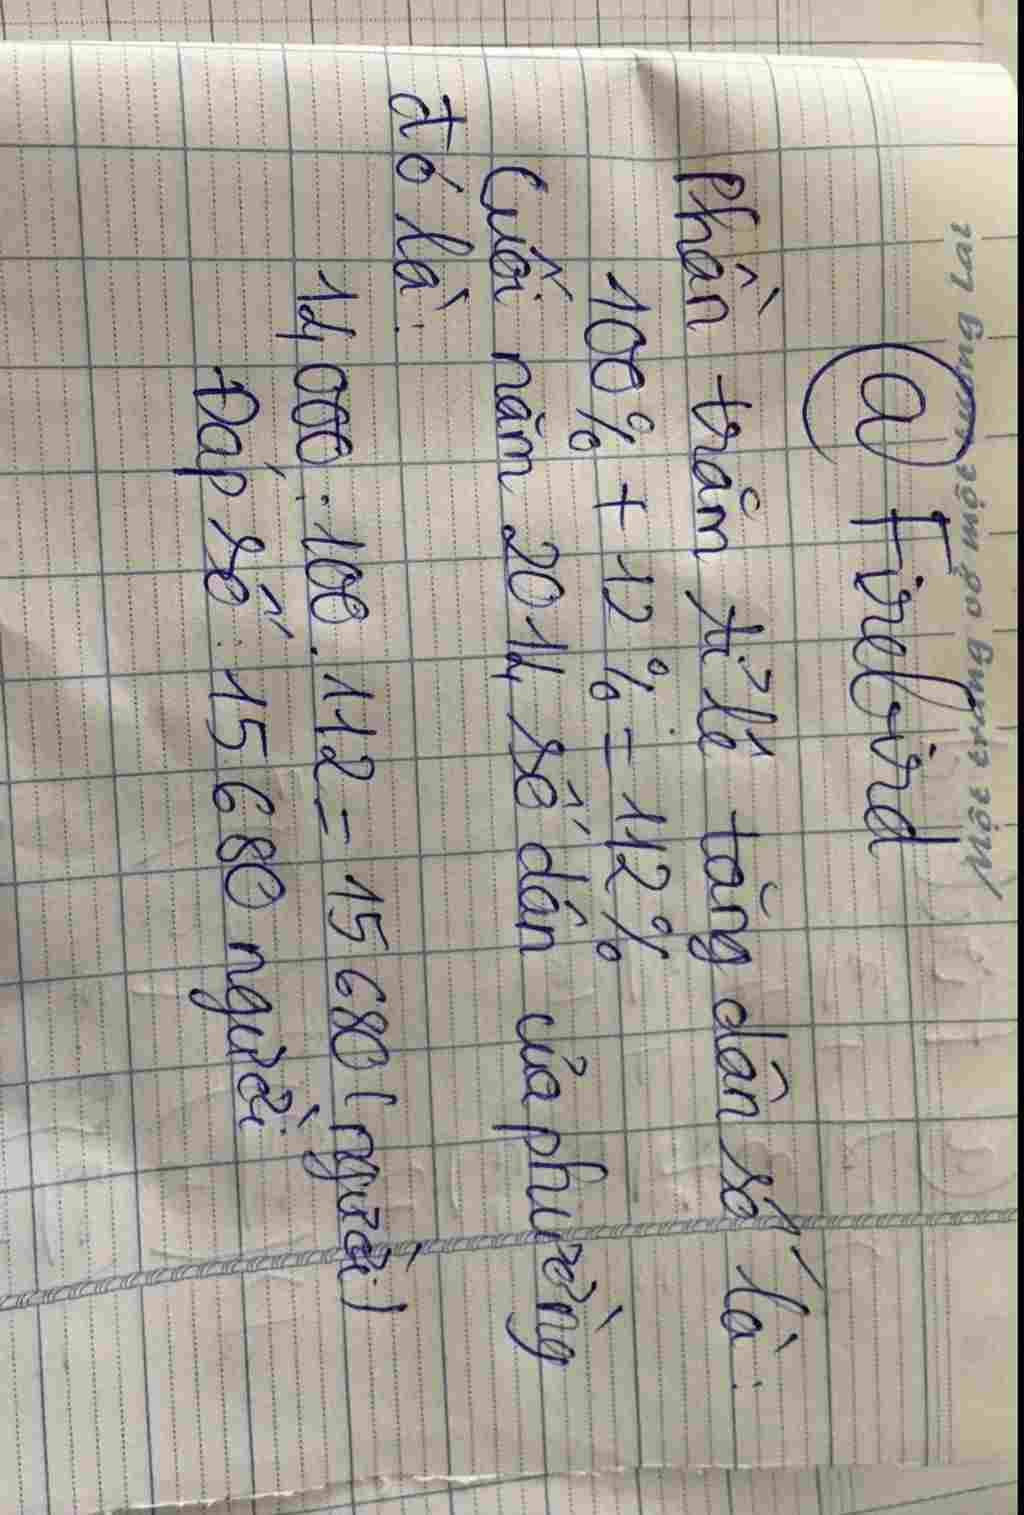 Một trang vở một tương lai
@ Firebird
Phần trăm tỉ lệ tăng dân số là:
100% + 12% = 112%
Cuối năm 2014 số dân của phường
đó là:
14000 : 100 . 112 = 15 680 (người)
Đáp số: 15 680 người